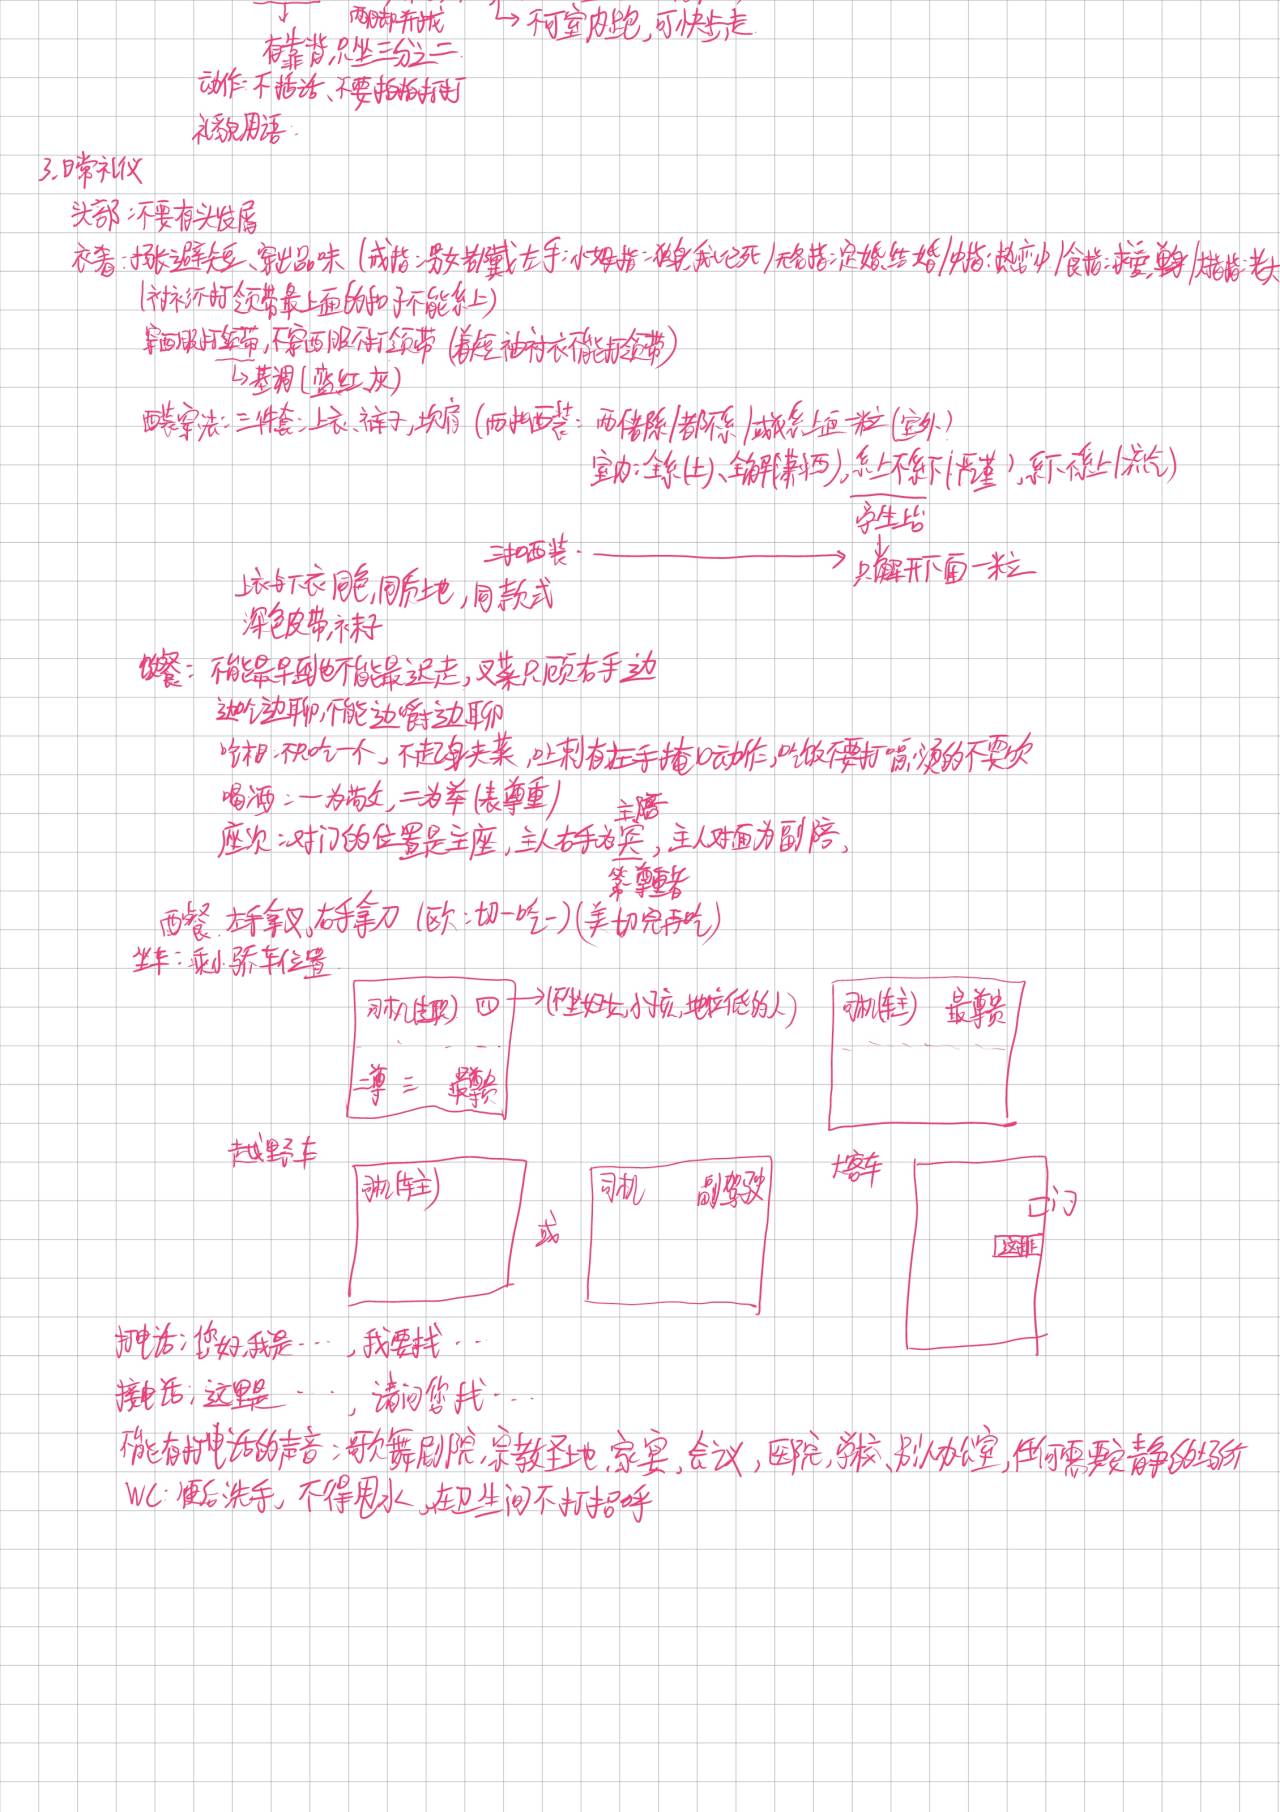 两脚并拢 → 不可室内跑,可快步走
有靠背,只坐三分之二
动作:不插话、不要拍拍打打
礼貌用语:
3.日常礼仪
头部:不要有头发屑
衣着:扬长避短、穿出品味(戒指:男女都戴左手:小姆指:独身/无名指:定婚,结婚/中指:热恋中/食指:求爱,单身/大拇指:老大
(衬衫不打领带最上面的扣子不能系上)
穿西服打领带,不穿西服不打领带(着短袖衬衣不能打领带)
↳基调(蓝、红、灰)
西装穿法:三件套:上衣、裤子,坎肩(两扣西装:都不系/或系上面一粒(室外)
室内:全系(土)、全解(潇洒),系上不系下(严谨),系下不系上(流气)
学生
三扣西装 → 只解开下面一粒
上衣与下衣同色,同质地,同款式
深色皮带,袜子
吃餐:不能最早到也不能最迟走,叉菜只顾右手边
边吃边聊,不能边嚼边聊
吃相:不起身夹菜,吐刺有左手掩口动作,吃饭不要打嗝,烫的不要吹
喝酒:一为敬,二为举(表尊重)
主陪
座次:对门的位置是主座,主人右手为宾,主人对面为副陪,
第一尊重者
西餐:左手拿叉,右手拿刀(欧:切一吃一)(美:切完再吃)
坐车:乘小轿车位置
司机 四 →(不坐妇女,小孩,地位低的人) 司机(车主) 最尊贵
二尊 三 最尊贵
越野车 大客车
司机(车主) 或 司机 副驾驶 门
这排
打电话:您好,我是……,我要找……
接电话:这里是……,请问您找……
不能有打电话的声音:歌舞剧院,宗教圣地,家宴,会议,医院,学校、别人办公室,任何需要安静的场所
WC:便后洗手,不得甩水,在卫生间不打招呼